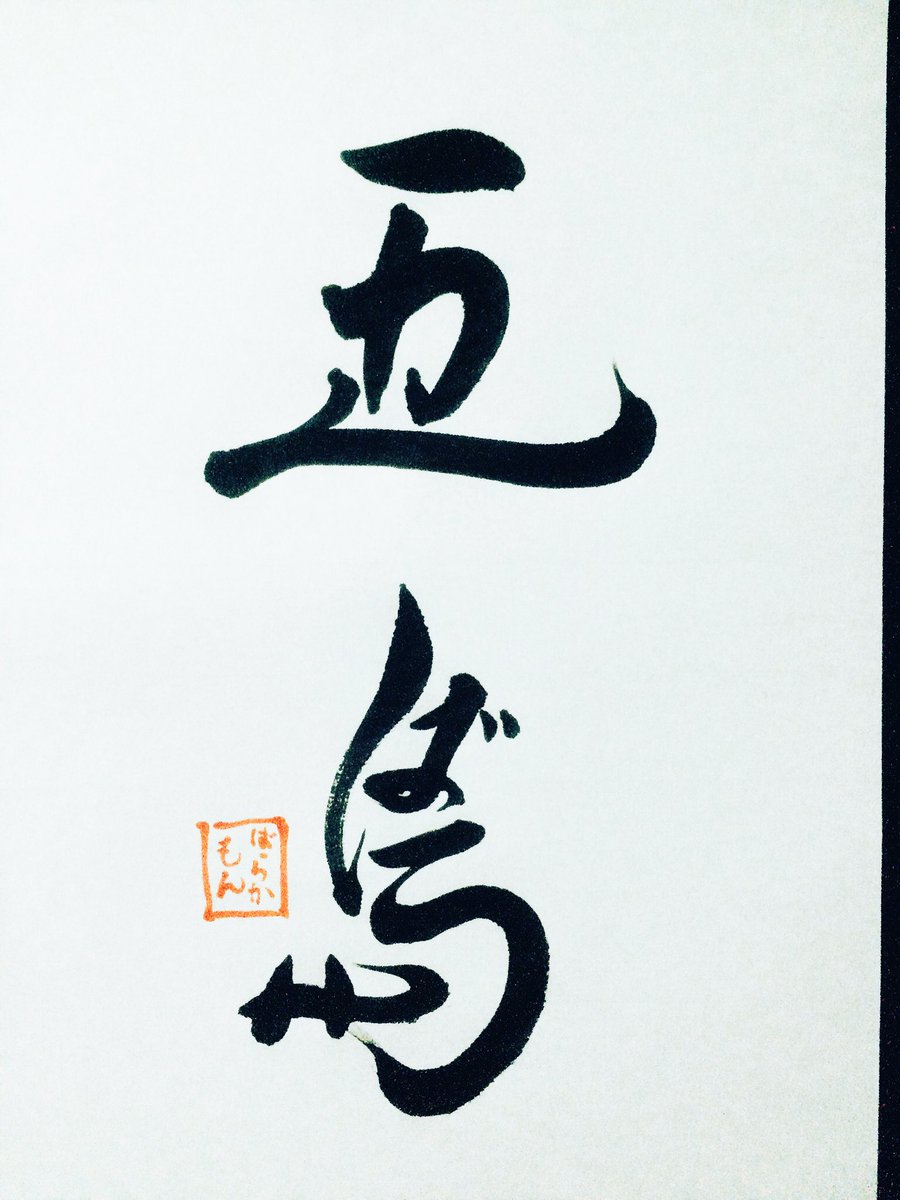 五島
ばらか
もん